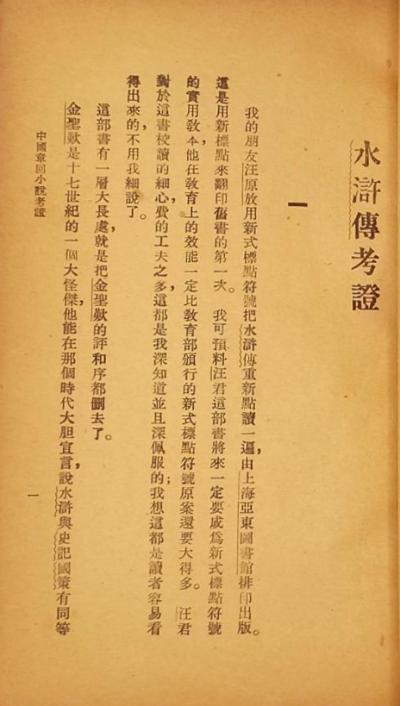 水滸傳考證
一
我的朋友汪原放用新式標點符號把水滸傳重新點讀一遍，由上海亞東圖書館排印出版。
這是用新標點來翻印舊書的第一次。我可預料汪君這部書將來一定要成爲新式標點符號
的實用教本，他在教育上的效能一定比教育部頒行的新式標點符號原案還要大得多。汪君
對於這書校讀的細心，費的工夫之多，這都是我深知道並且深佩服的；我想這都是讀者容易看
得出來的不用我細說了。
這部書有一層大長處，就是把金聖歎的評和序都刪去了。
金聖歎是十七世紀的一個大怪傑，他能在那個時代大胆宣言，說水滸與史記國策有同等
中國章回小說考證
一